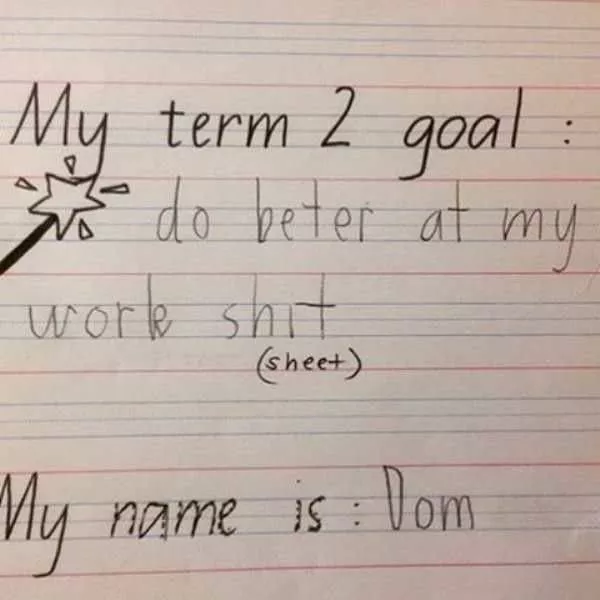 My term 2 goal :
do beter at my
work shit
(sheet)
My name is : Dom